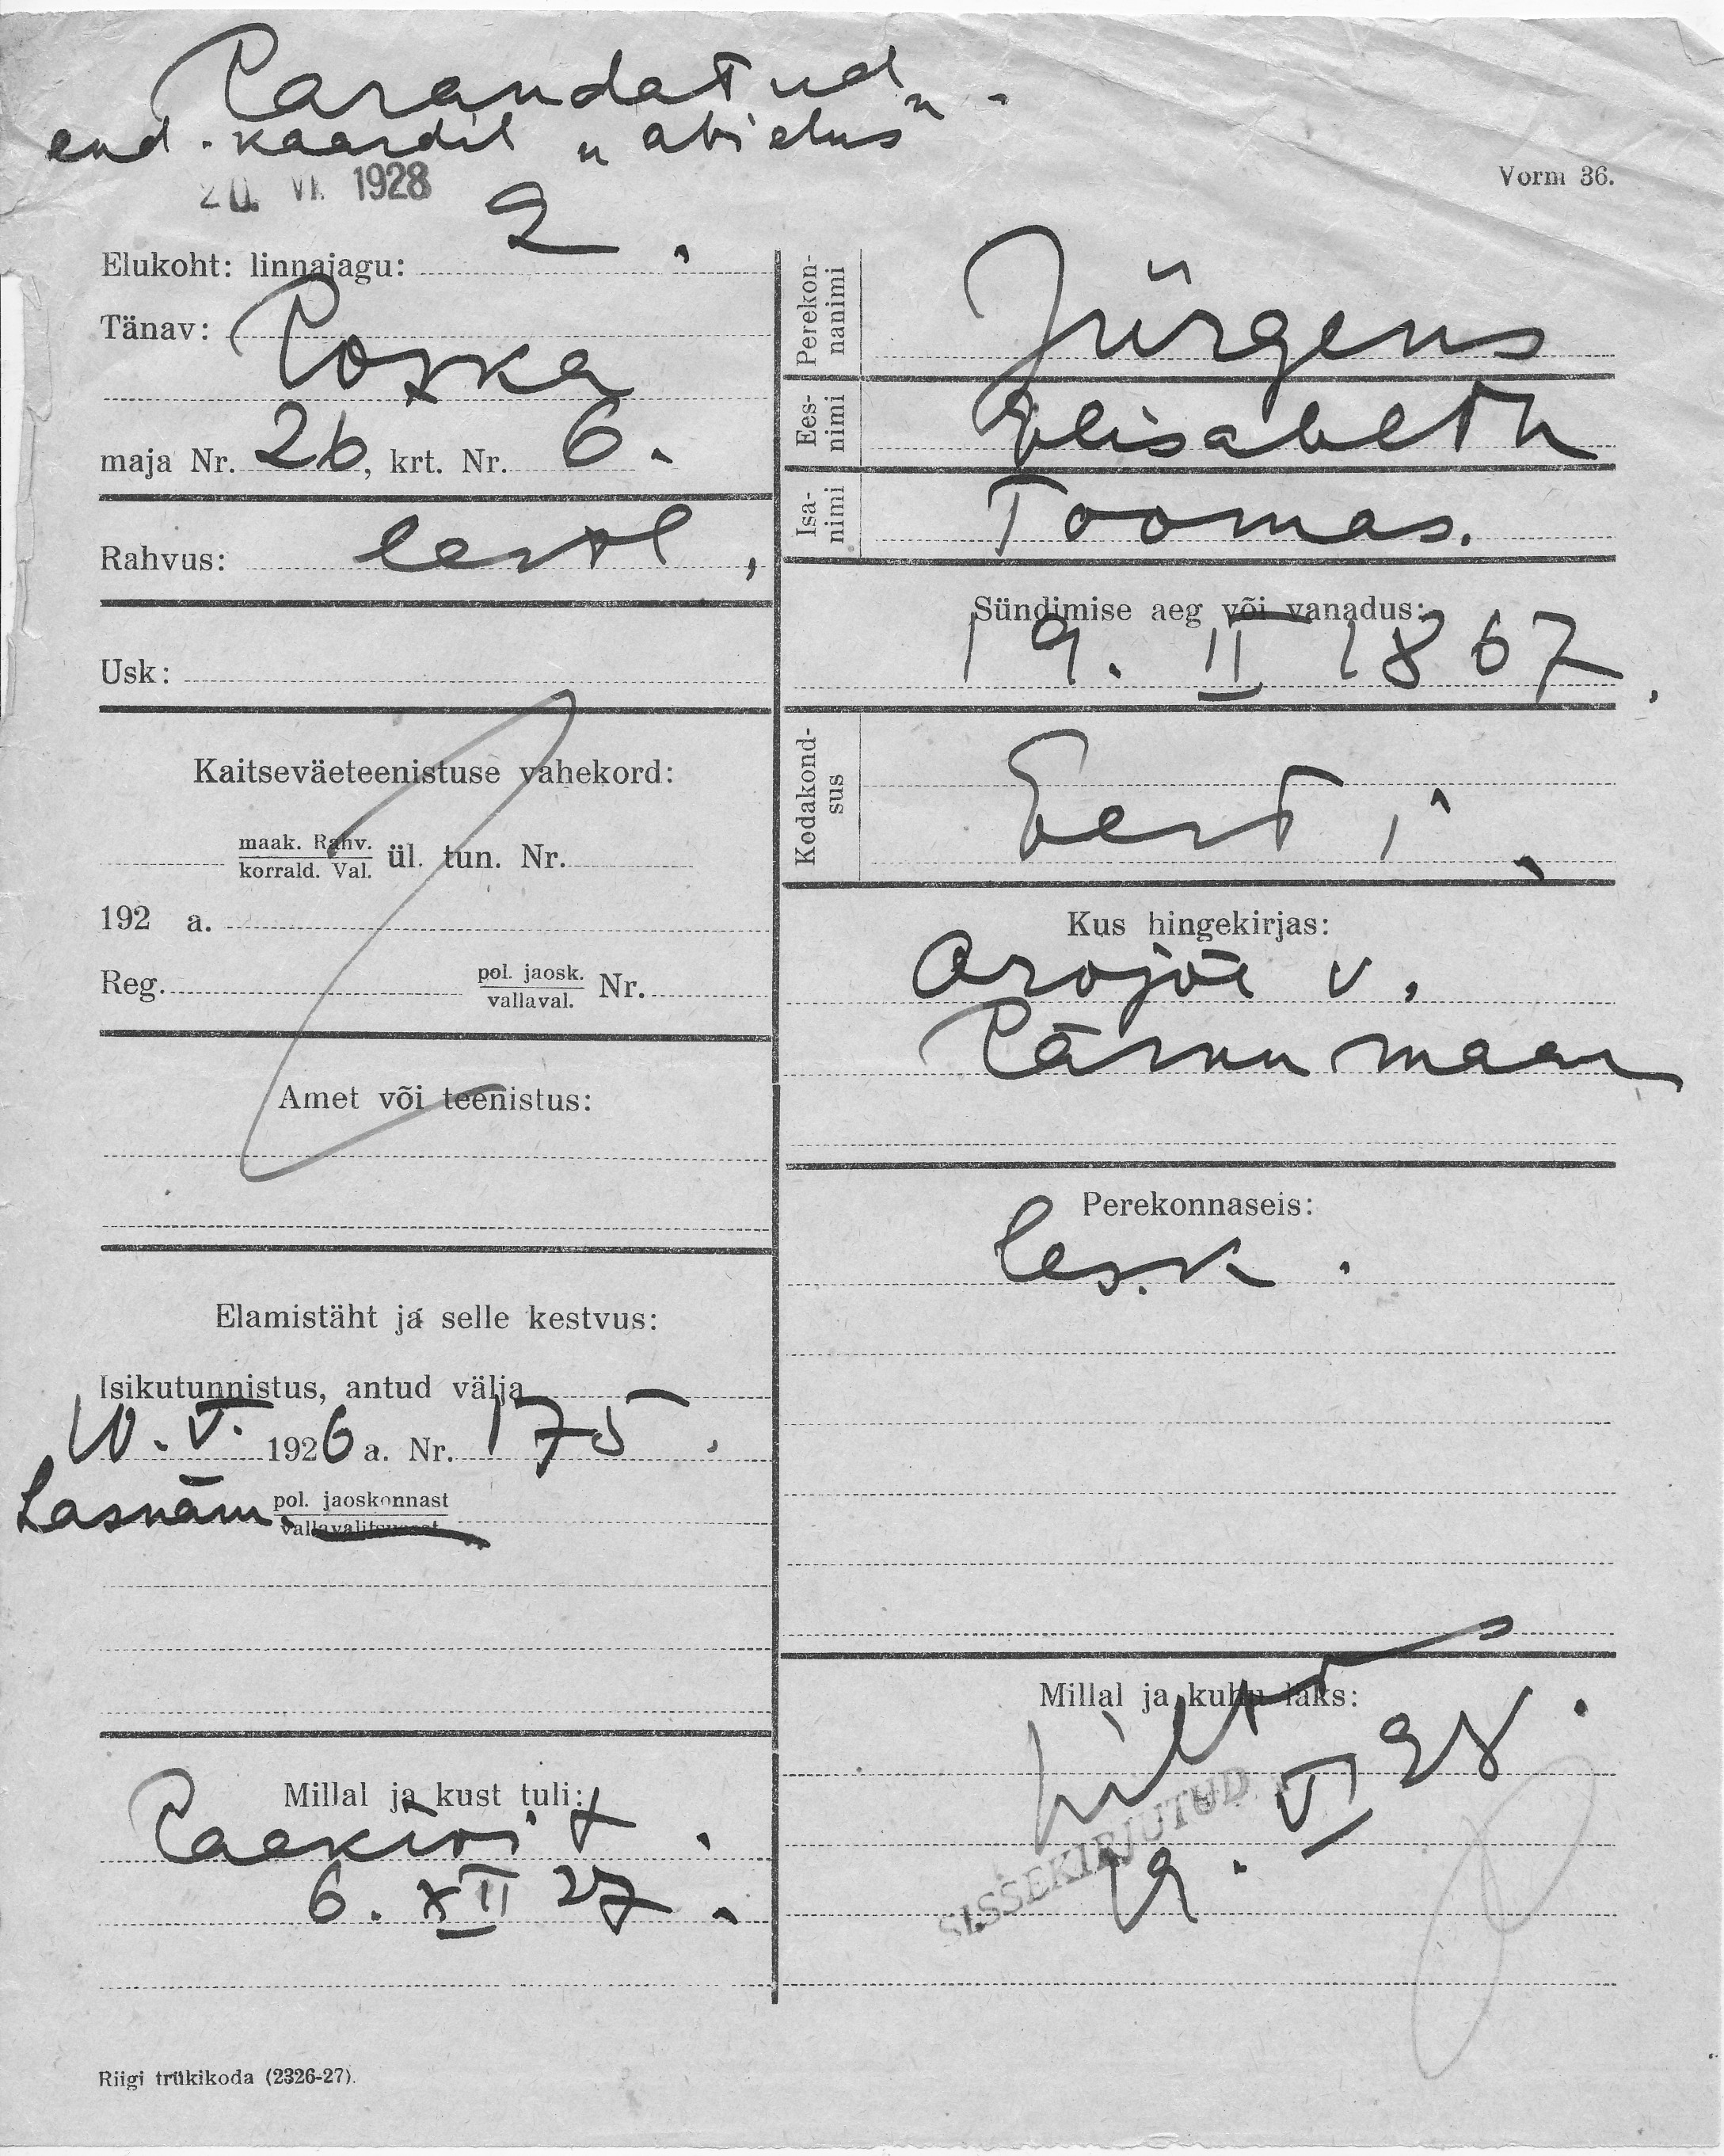 Parandatud
end. kaardil „abielus”.
20. VI. 1928
Vorm 36.
Elukoht: linnajagu: 2.
Tänav: Poska
maja Nr. 26, krt. Nr. 6.
Rahvus: eesti,
Usk:
Kaitseväeteenistuse vahekord:
maak. Rahv.
korrald. Val. ül. tun. Nr.
192 a.
Reg. pol. jaosk.
vallaval. Nr.
Amet või teenistus:
Elamistäht ja selle kestvus:
Isikutunnistus, antud välja
10. V. 1926 a. Nr. 175.
Lasnäm. pol. jaoskonnast
vallavalitsusest
Millal ja kust tuli:
Paekivi t.
6. XII 27.
Riigi trükikoda (2326-27).
Perekon-
nanimi
Jürgens
Ees-
nimi
Elisabeth
Isa-
nimi
Toomas.
Sündimise aeg või vanadus:
19. II 1867.
Kodakond-
sus
Eesti.
Kus hingekirjas:
Arojõe v.
Pärnumaa
Perekonnaseis:
lesk.
Millal ja kuhu läks:
19. VI 28.
SISSEKIRJUTUD